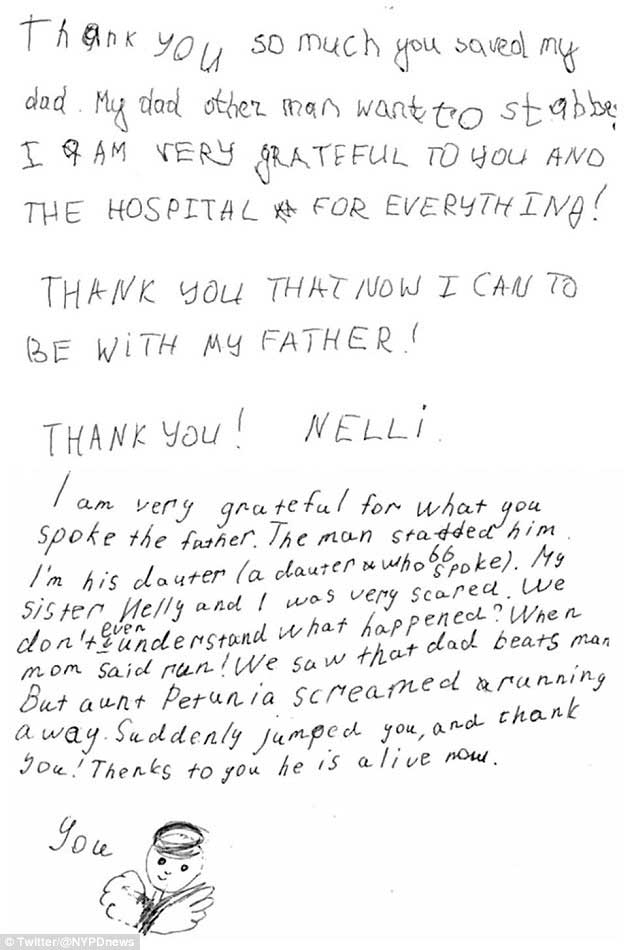 Thank you so much you saved my
dad. My dad other man want to stabbe
I AM VERY GRATEFUL TO YOU AND
THE HOSPITAL FOR EVERYTHING!
THANK YOU THAT NOW I CAN TO
BE WITH MY FATHER!
THANK YOU! NELLi.
I am very grateful for what you
spoke the father. The man stadded him.
bb
I'm his dauter (a dauter who spoke). My
sister Nelly and I was very scared. We
even
don't understand what happened? When
mom said run! We saw that dad beats man
But aunt Petunia screamed a running
away. Suddenly jumped you, and thank
you! Thenks to you he is alive now.
You
© Twitter/@NYPDnews